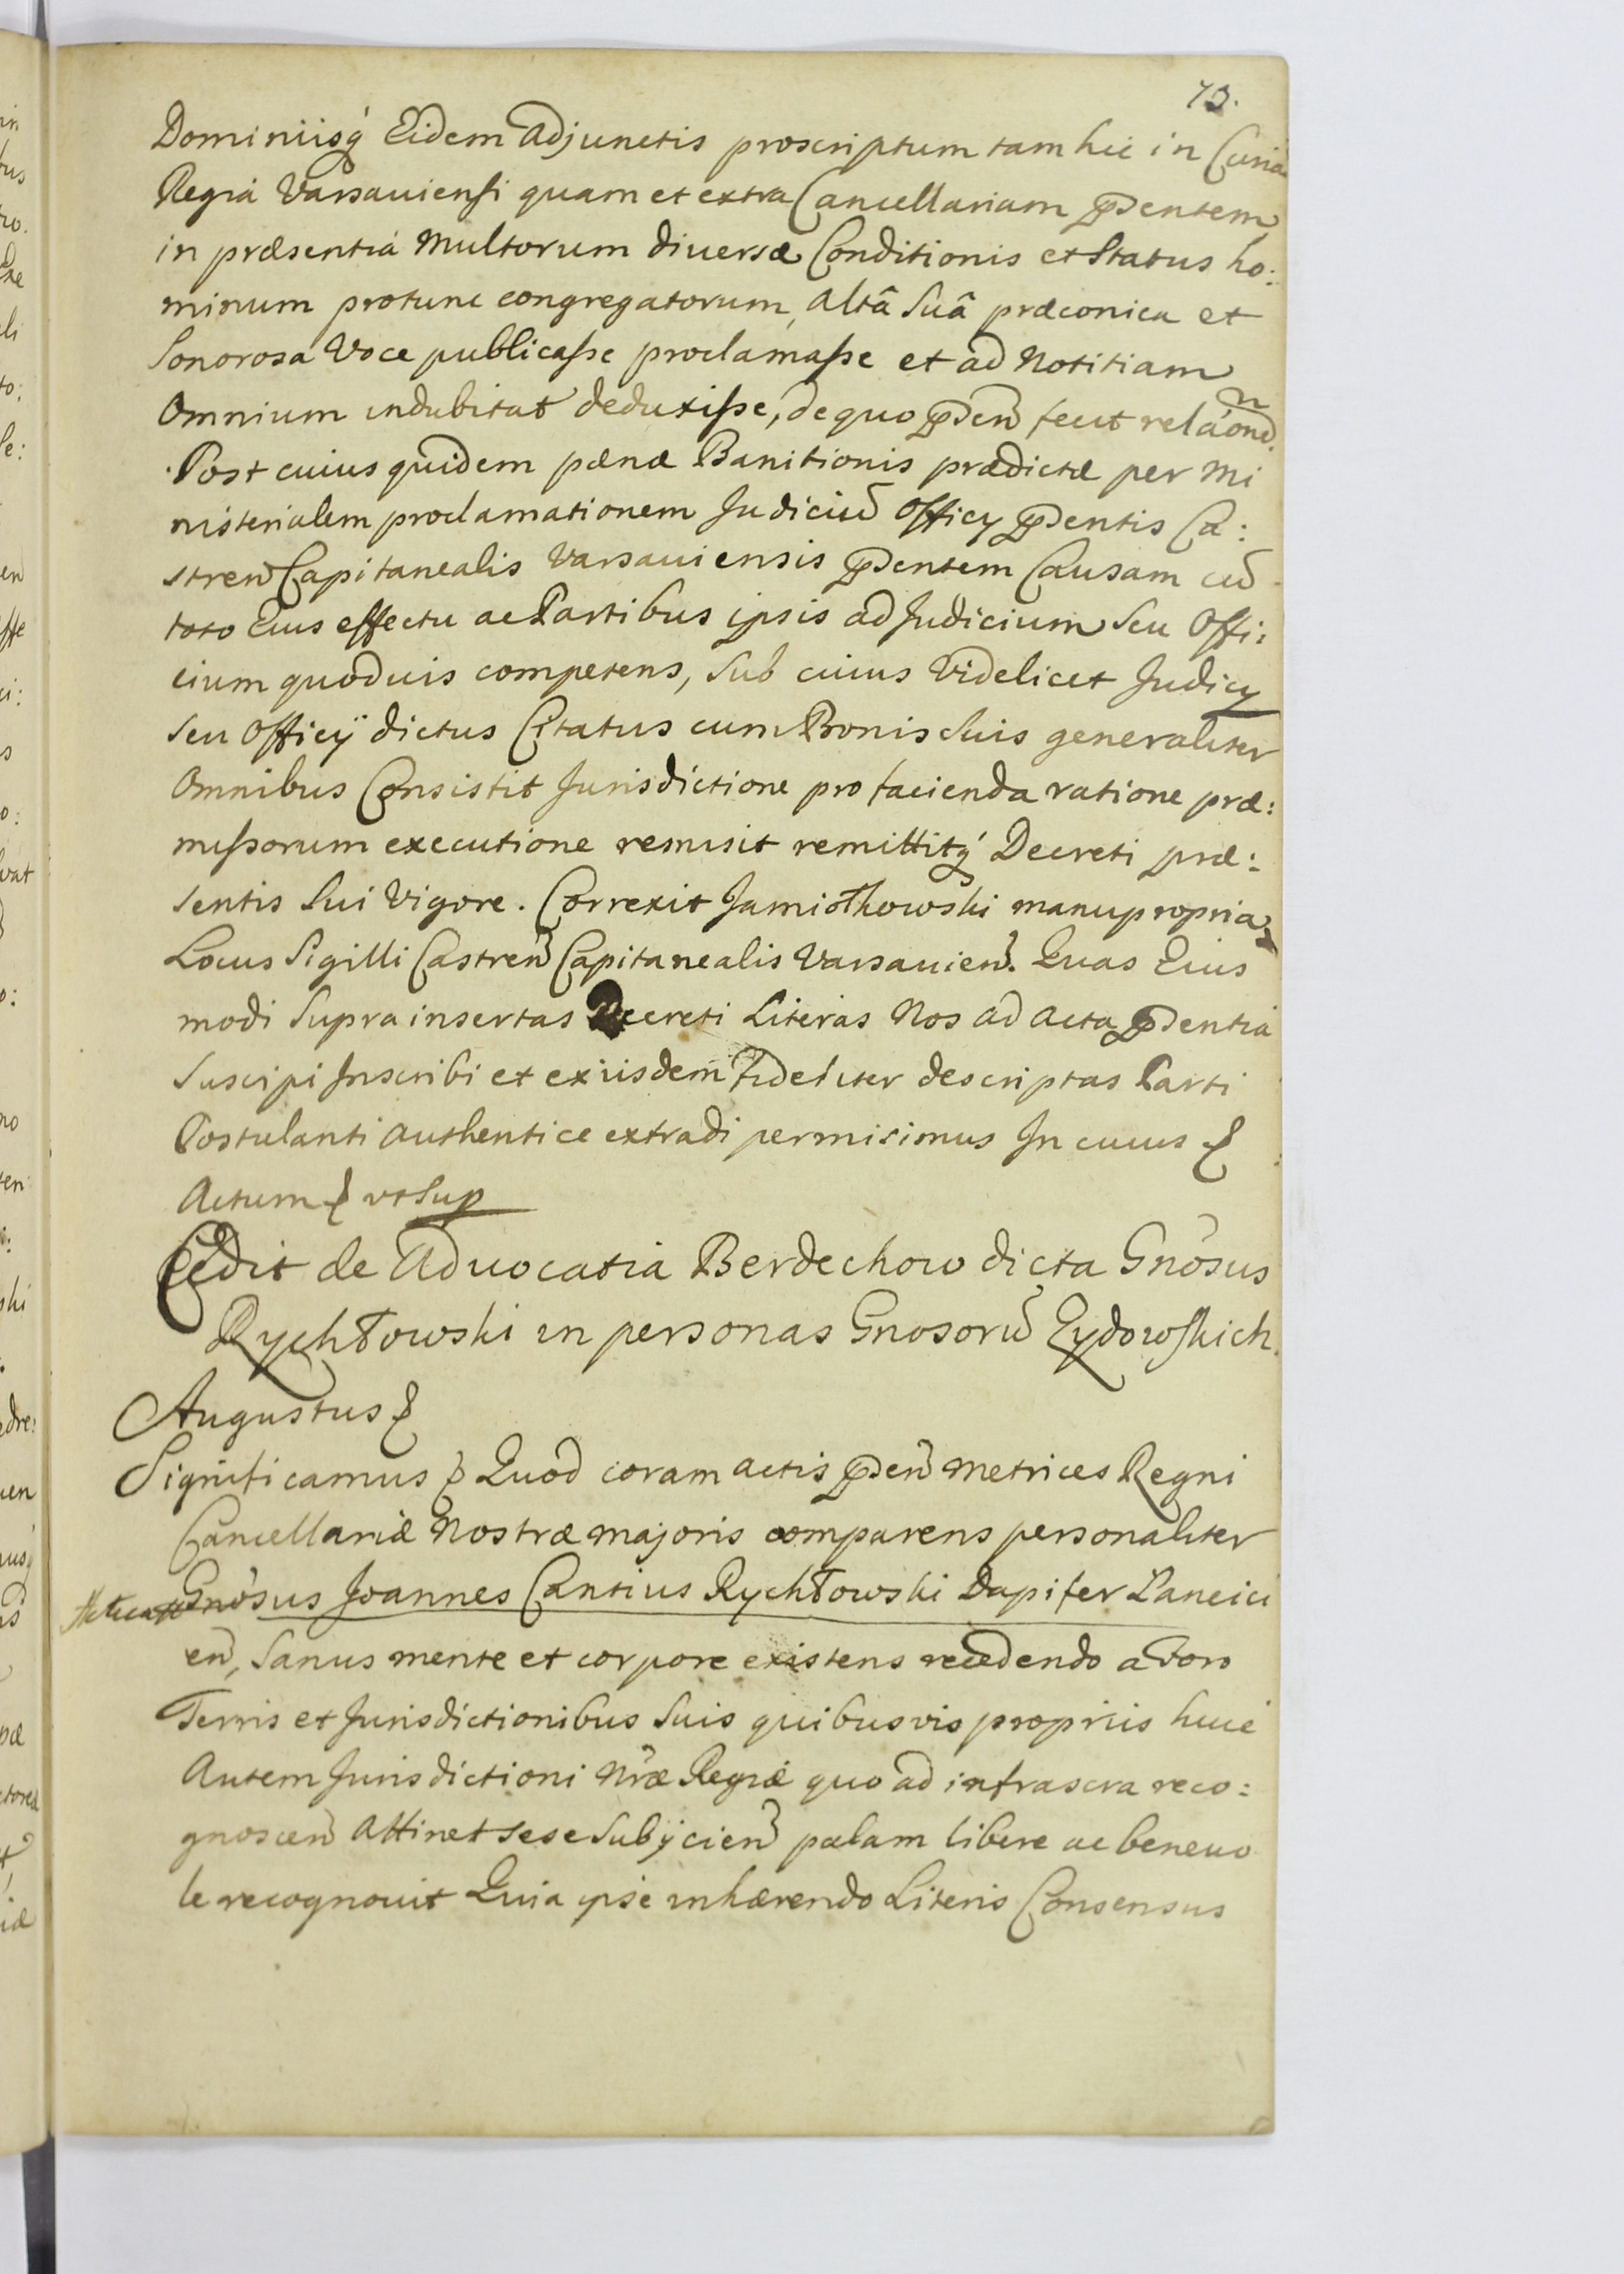 73.
Dominiisq́ Eidem Adjunctis proscriptum tam hic in Curia
Regia Varsauiensi quam et extra Cancellariam p̄dentem
in præsentia Multorum diversæ Conditionis et Status ho:
minum protunc congregatorum, Altâ Suâ præconica et
Sonorosa Voce publicasse proclamasse et ad Notitiam
Omnium indubitat deduxisse, de quo p̄den̄ fecit relãonē
Post cuius quidem pænæ Banitionis prædictæ per Mi
nisterialem proclamationem Judiciū Officy p̄dentis Ca:
stren̄ Capitanealis Varsauiensis p̄dentem Causam cū
toto Eius effectu ac Partibus ipsis ad Judicium Seu Offi:
cium quoduis competens, Sub cuius Videlicet Judicy
seu Officÿ dictus Citatus cum Bonis Suis generaliter
Omnibus Consistit Jurisdictione pro facienda ratione præ:
missorum executione remisit remittitq́ Decreti præ:
sentis Sui Vigore. Correxit Jamiołkowski manu propria
Locus Sigilli Castren̄ Capitanealis Varsauien̄. Quas Eius
modi Supra insertas Decreti Literas Nos ad Acta p̄dentia
Suscipi Inscribi et ex iisdem Fideliter descriptas Parti
Postulanti Authentice extradi permisimus In cuius &
Actum & vt Sup
Cedit de Advocatia Berdechow dicta Gnōsus
Rychłowski in personas Gnosorū Zydowskich.
Augustus &
Significamus & Quod coram actis p̄den̄ Metrices Regni
Cancellariæ Nostræ majoris comparens personaliter
Gnōsus Joannes Cantius Rychłowski Dapifer Lancici
en̄, Sanus mente et corpore existens recedendo a Foro
Terris et Jurisdictionibus Suis quibusvis propriis huic
Autem Jurisdictioni Nr̄æ Regiæ quo ad infrascra reco:
gnoscen̄ Attinet sese Subÿcien̄ palam libere ac beneuo
le recognouit Quia ipse inhærendo Literis Consensus